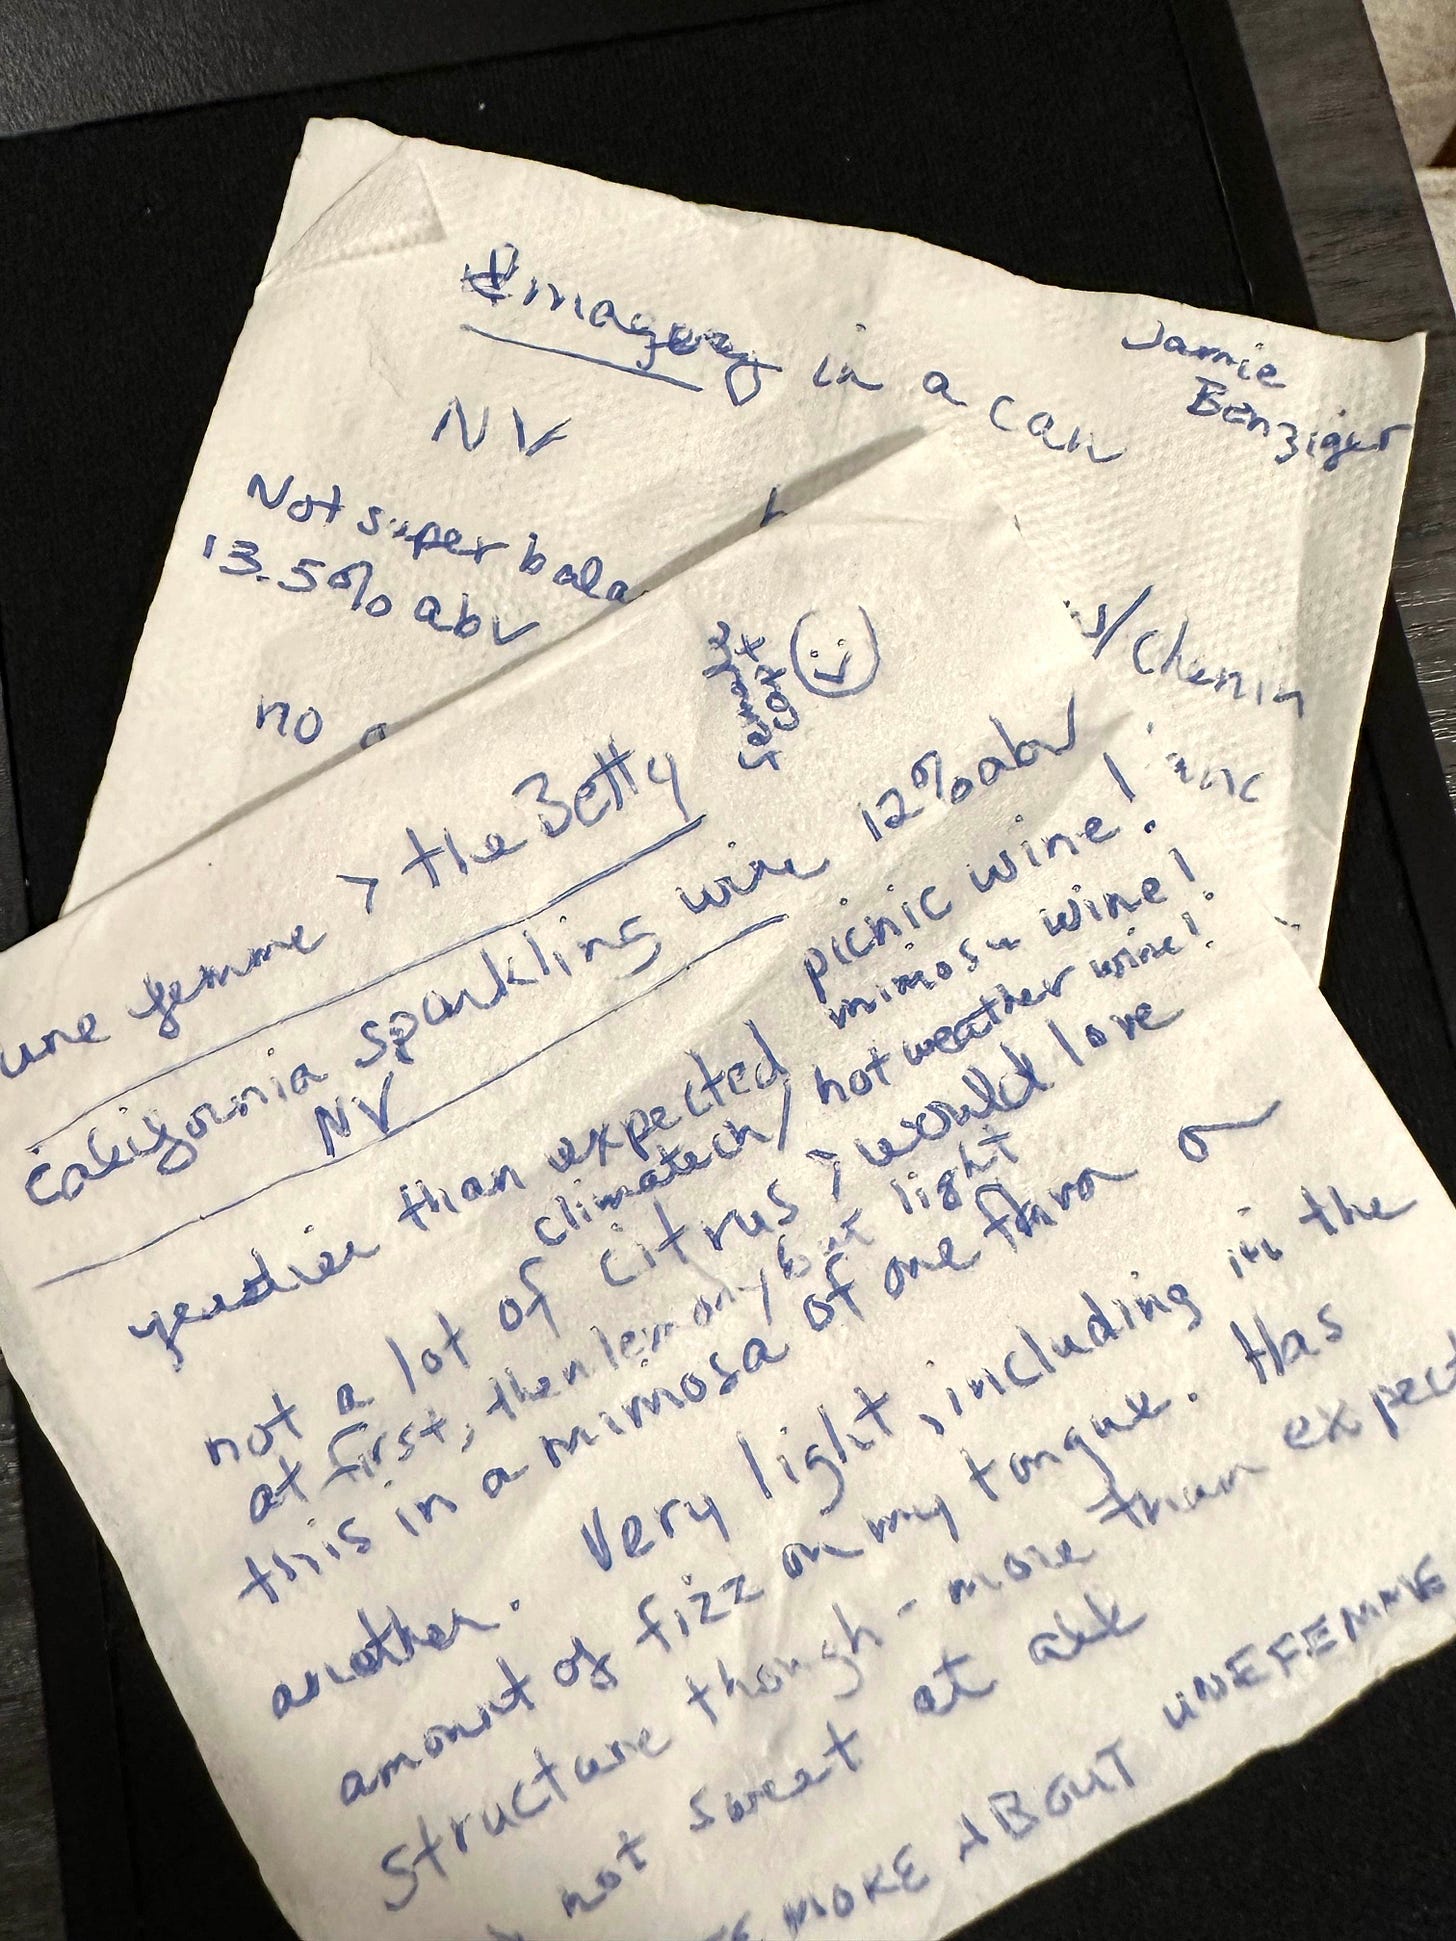 Imagery in a can
Jamie
Benziger
NV
Not super bala
13.5% abv
w/chenin
no
inc
une femme > the Betty
California sparkling wine 12% abv
NV
picnic wine!
mimosa wine!
yeastier than expected
hot weather wine!
not a lot of citrus > would love
at first, then lemony but light
this in a mimosa of one flavor or
another. Very light, including in the
amount of fizz on my tongue. Has
structure though - more than expect
not sweet at all
MORE ABOUT UNE FEMME